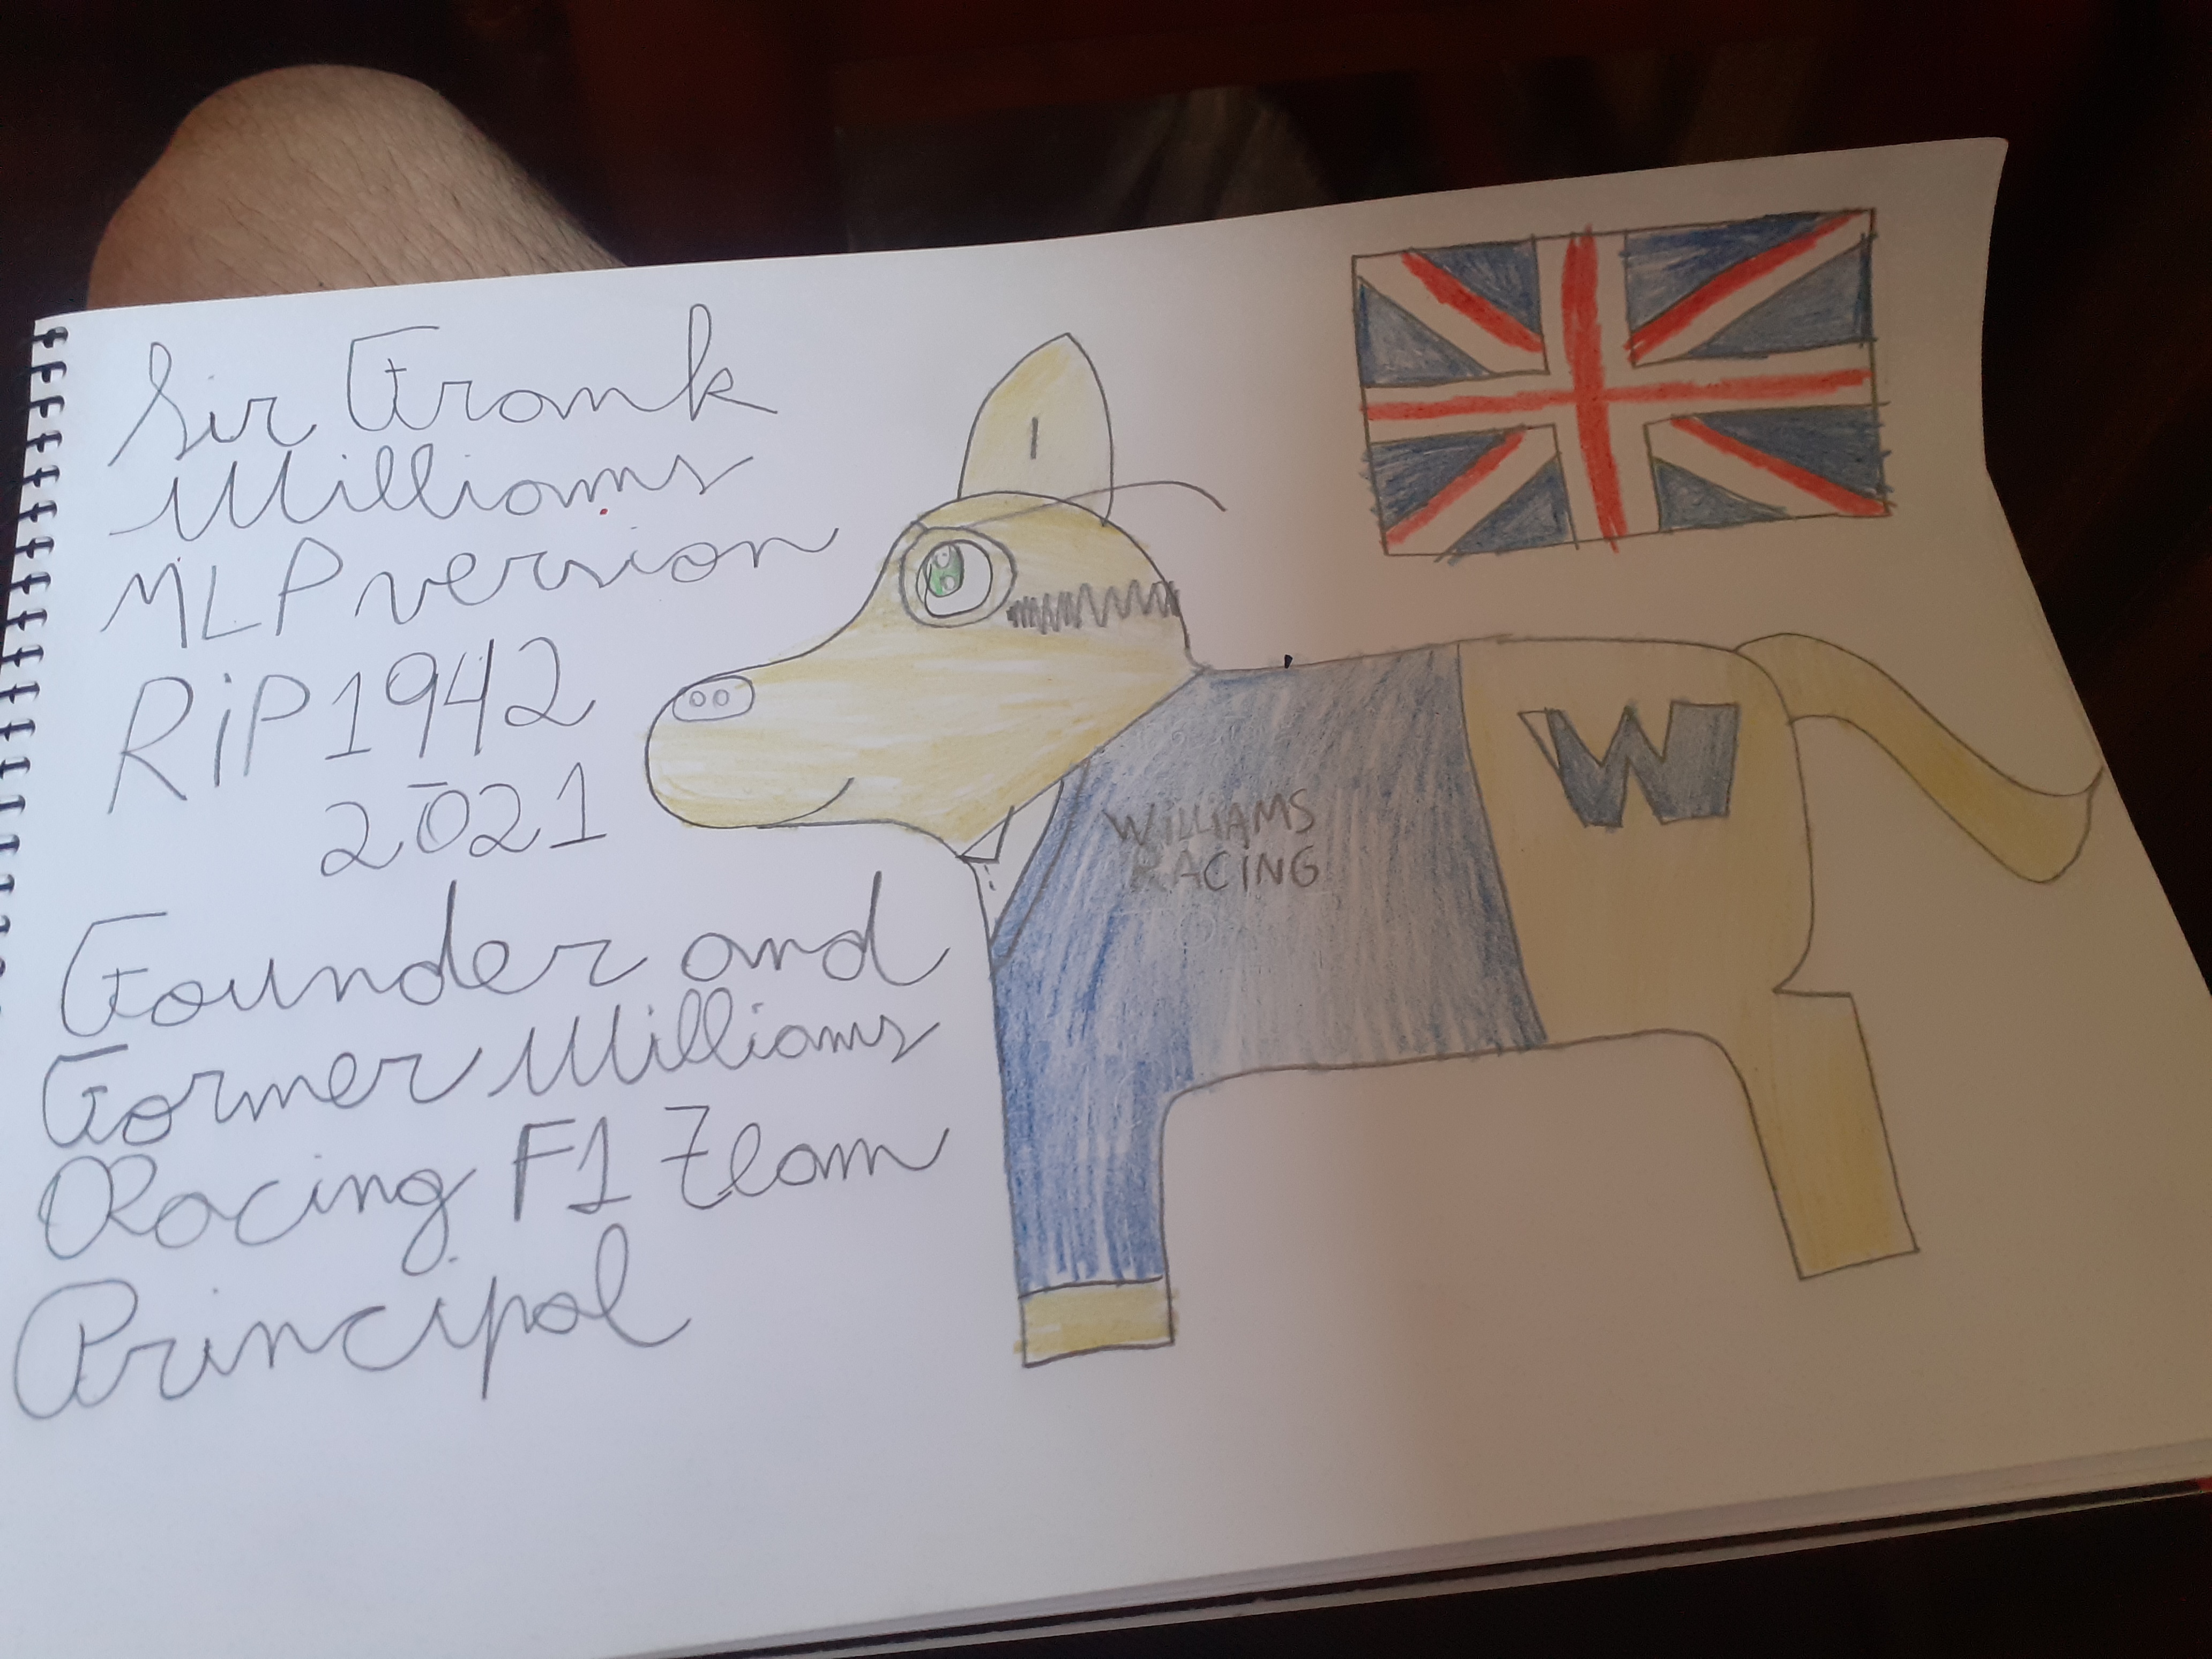 Sir Frank
Williams
MLP version
RiP 1942
2021
Founder and
Former Williams
Racing F1 Team
Principal
WILLIAMS
RACING
W